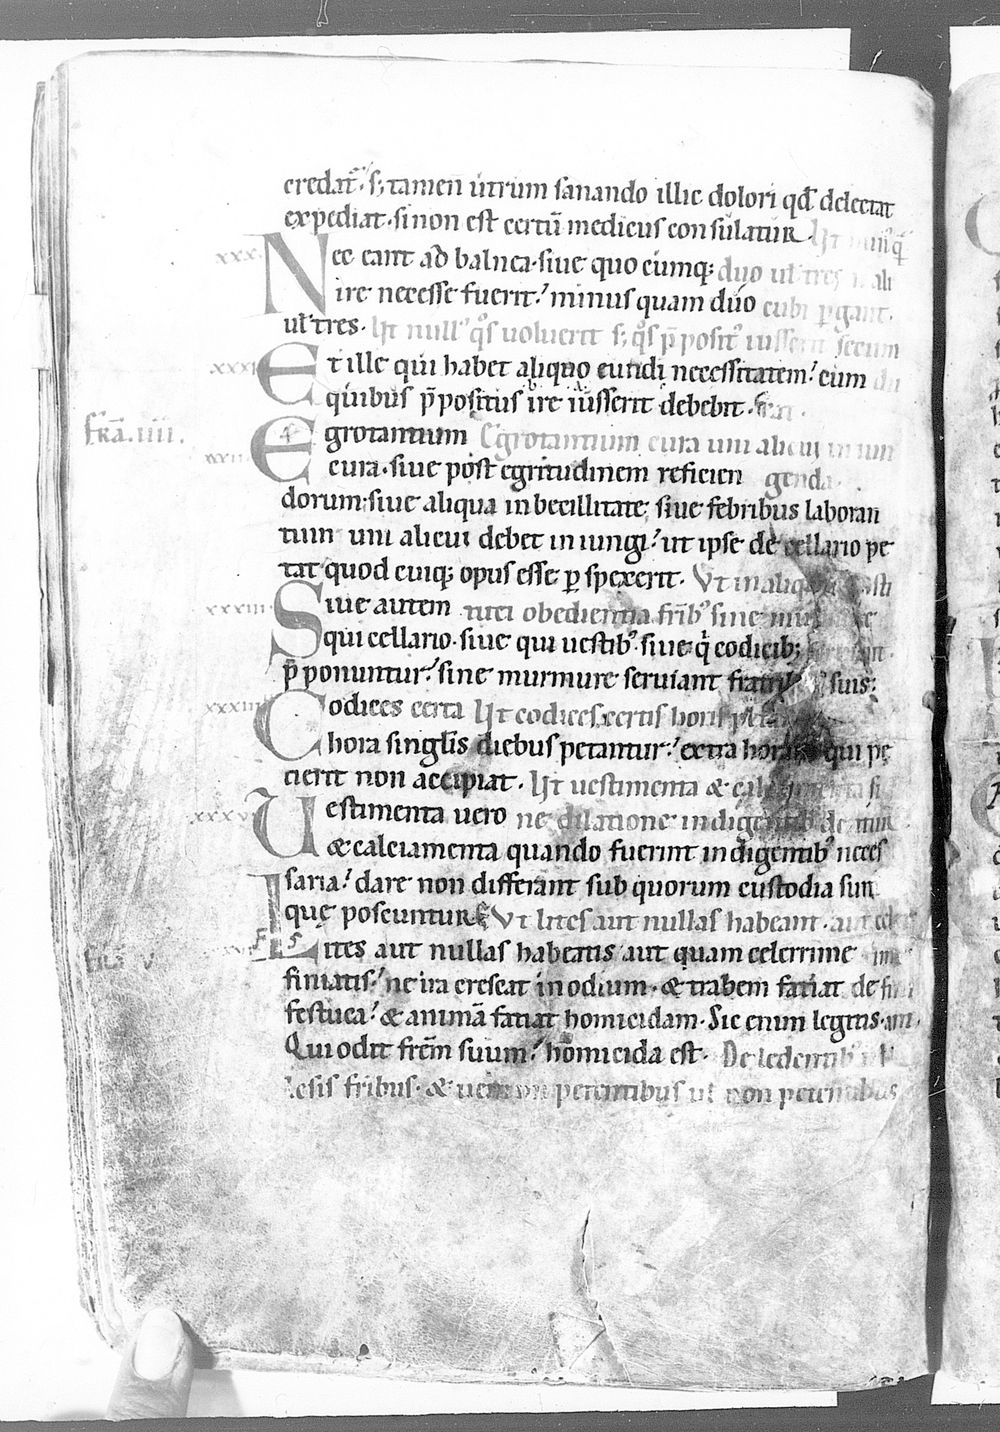 credat᷑· s; tamen utrum sanando illic dolori qđ delectat
expediat· si non est certū medicus consulatur. Ut
xxx. Nec eant ad balnea· siue quo cumq; duo ul tres
ire necesse fuerit? minus quam duo pgant.
ul tres. Ut null' q̊s uoluerit s; q̊s p̄posit' iusserit secum
xxxi Et ille qui habet aliquo eundi necessitatem? cum
quibus p̄positus ire iusserit debebit.
Fra. iiii. Egrotantium Egrotantium cura uni alicui in iun
xxxii. cura· siue post egritudinem reficien genda.
dorum· siue aliqua inbecillitate· siue febribus laboran
tium uni alicui debet iniungi? ut ipse de cellario pe
tat quod cuiq; opus esse p spexerit. Ut in aliqua
xxxiii. Siue autem obedientia frib' sine
qui cellario· siue qui uestib' siue q̇ codicib;
p̄ponuntur? sine murmure seruiant suis:
xxxiiii Codices certa Ut codices certis horis
hora singlis diebus petantur? extra qui pe
tierit non accipiat. Ut uestimenta &
xxxv Uestimenta uero ne dilatione indigentib' de
& calciamenta quando fuerint indigentib' neces
saria? dare non differant sub quorum custodia sunt
quę poscuntur. Ut lites aut nullas habeant. aut
Fra v. Lites aut nullas habeatis aut quam celerrime
finiatis? ne ira crescat in odium· & trabem faciat de
festuca? & animā faciat homicidam· Sic enim legitis·
Qui odit frēm suum? homicida est. De ledentib'
lesis fribus· & ueniam petentibus ul non petentibus